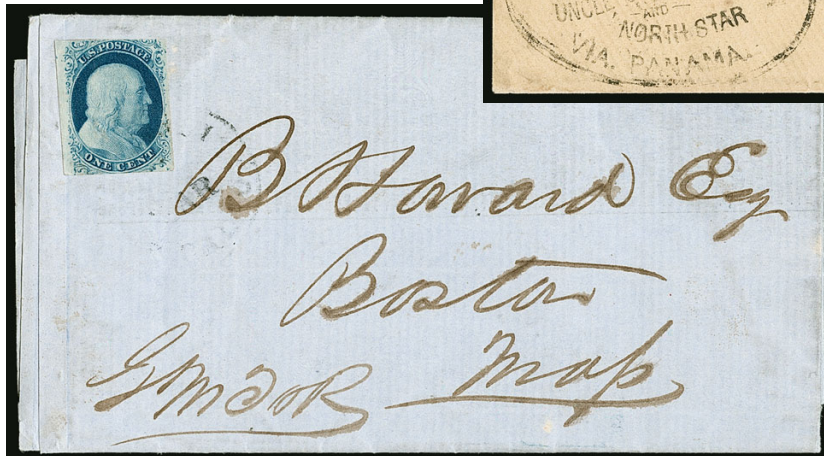 UNCLE
AND
NORTH STAR
VIA. PANAMA.
U.S. POSTAGE
ONE CENT
B Howard Esq
Boston
Mass